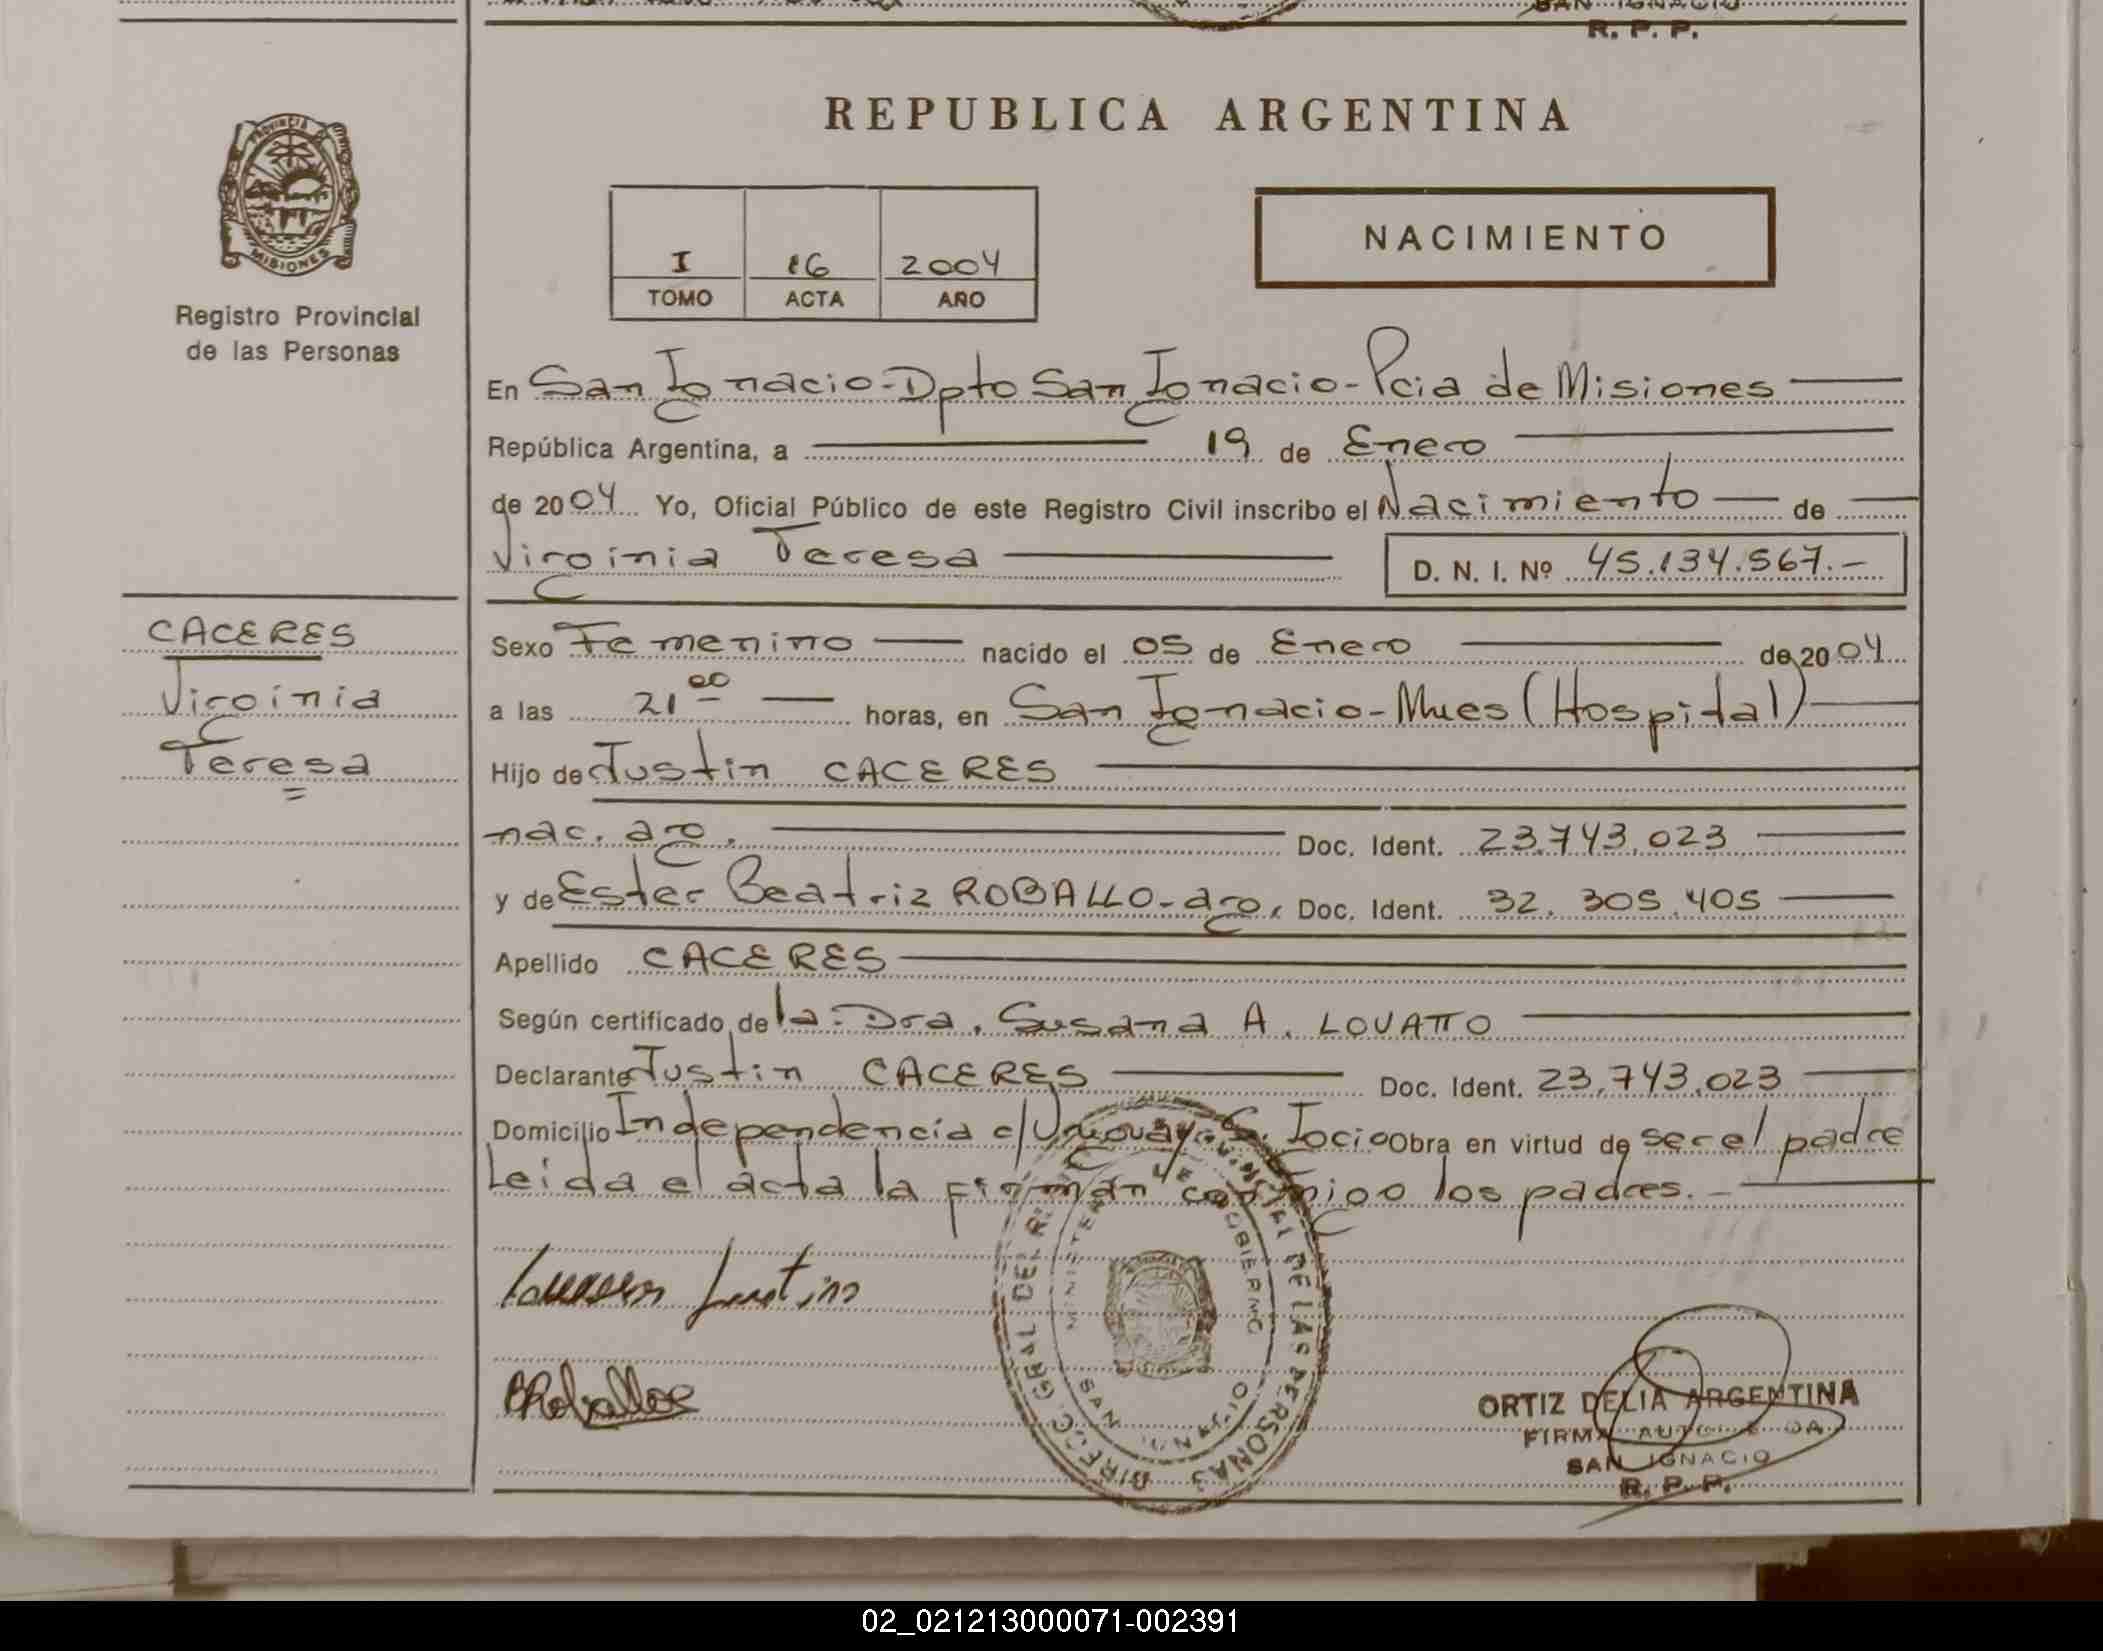 SAN IGNACIO
R. P. P.
PROVINCIA
MISIONES
Registro Provincial
de las Personas
REPUBLICA ARGENTINA
I 16 2004
TOMO ACTA AÑO
NACIMIENTO
En San Ignacio-Dpto San Ignacio-Pcia de Misiones
República Argentina, a 19 de Enero
de 2004 Yo, Oficial Público de este Registro Civil inscribo el Nacimiento de
Virginia Teresa D. N. I. Nº 45.134.567.-
CACERES
Virginia
Teresa
Sexo Femenino nacido el 05 de Enero de 2004
a las 21 00 horas, en San Ignacio-Mnes (Hospital)
Hijo de Justin CACERES
nac. arg. Doc. Ident. 23.743.023
y de Ester Beatriz ROBALLO-arg. Doc. Ident. 32.305.405
Apellido CACERES
Según certificado de la Dra. Susana A. LOVATTO
Declarante Justin CACERES Doc. Ident. 23.743.023
Domicilio Independencia c/Uruguay-S. Igcio Obra en virtud de ser el padre
Leida el acta la firman conmigo los padres.-
DIRECC. GRAL DEL R. PROVINCIAL DE LAS PERSONAS
MINISTERIO DE GOBIERNO
SAN IGNACIO
BRoballoe
ORTIZ DELIA ARGENTINA
FIRMA AUTORIZADA
SAN IGNACIO
R. P. P.
02_021213000071-002391